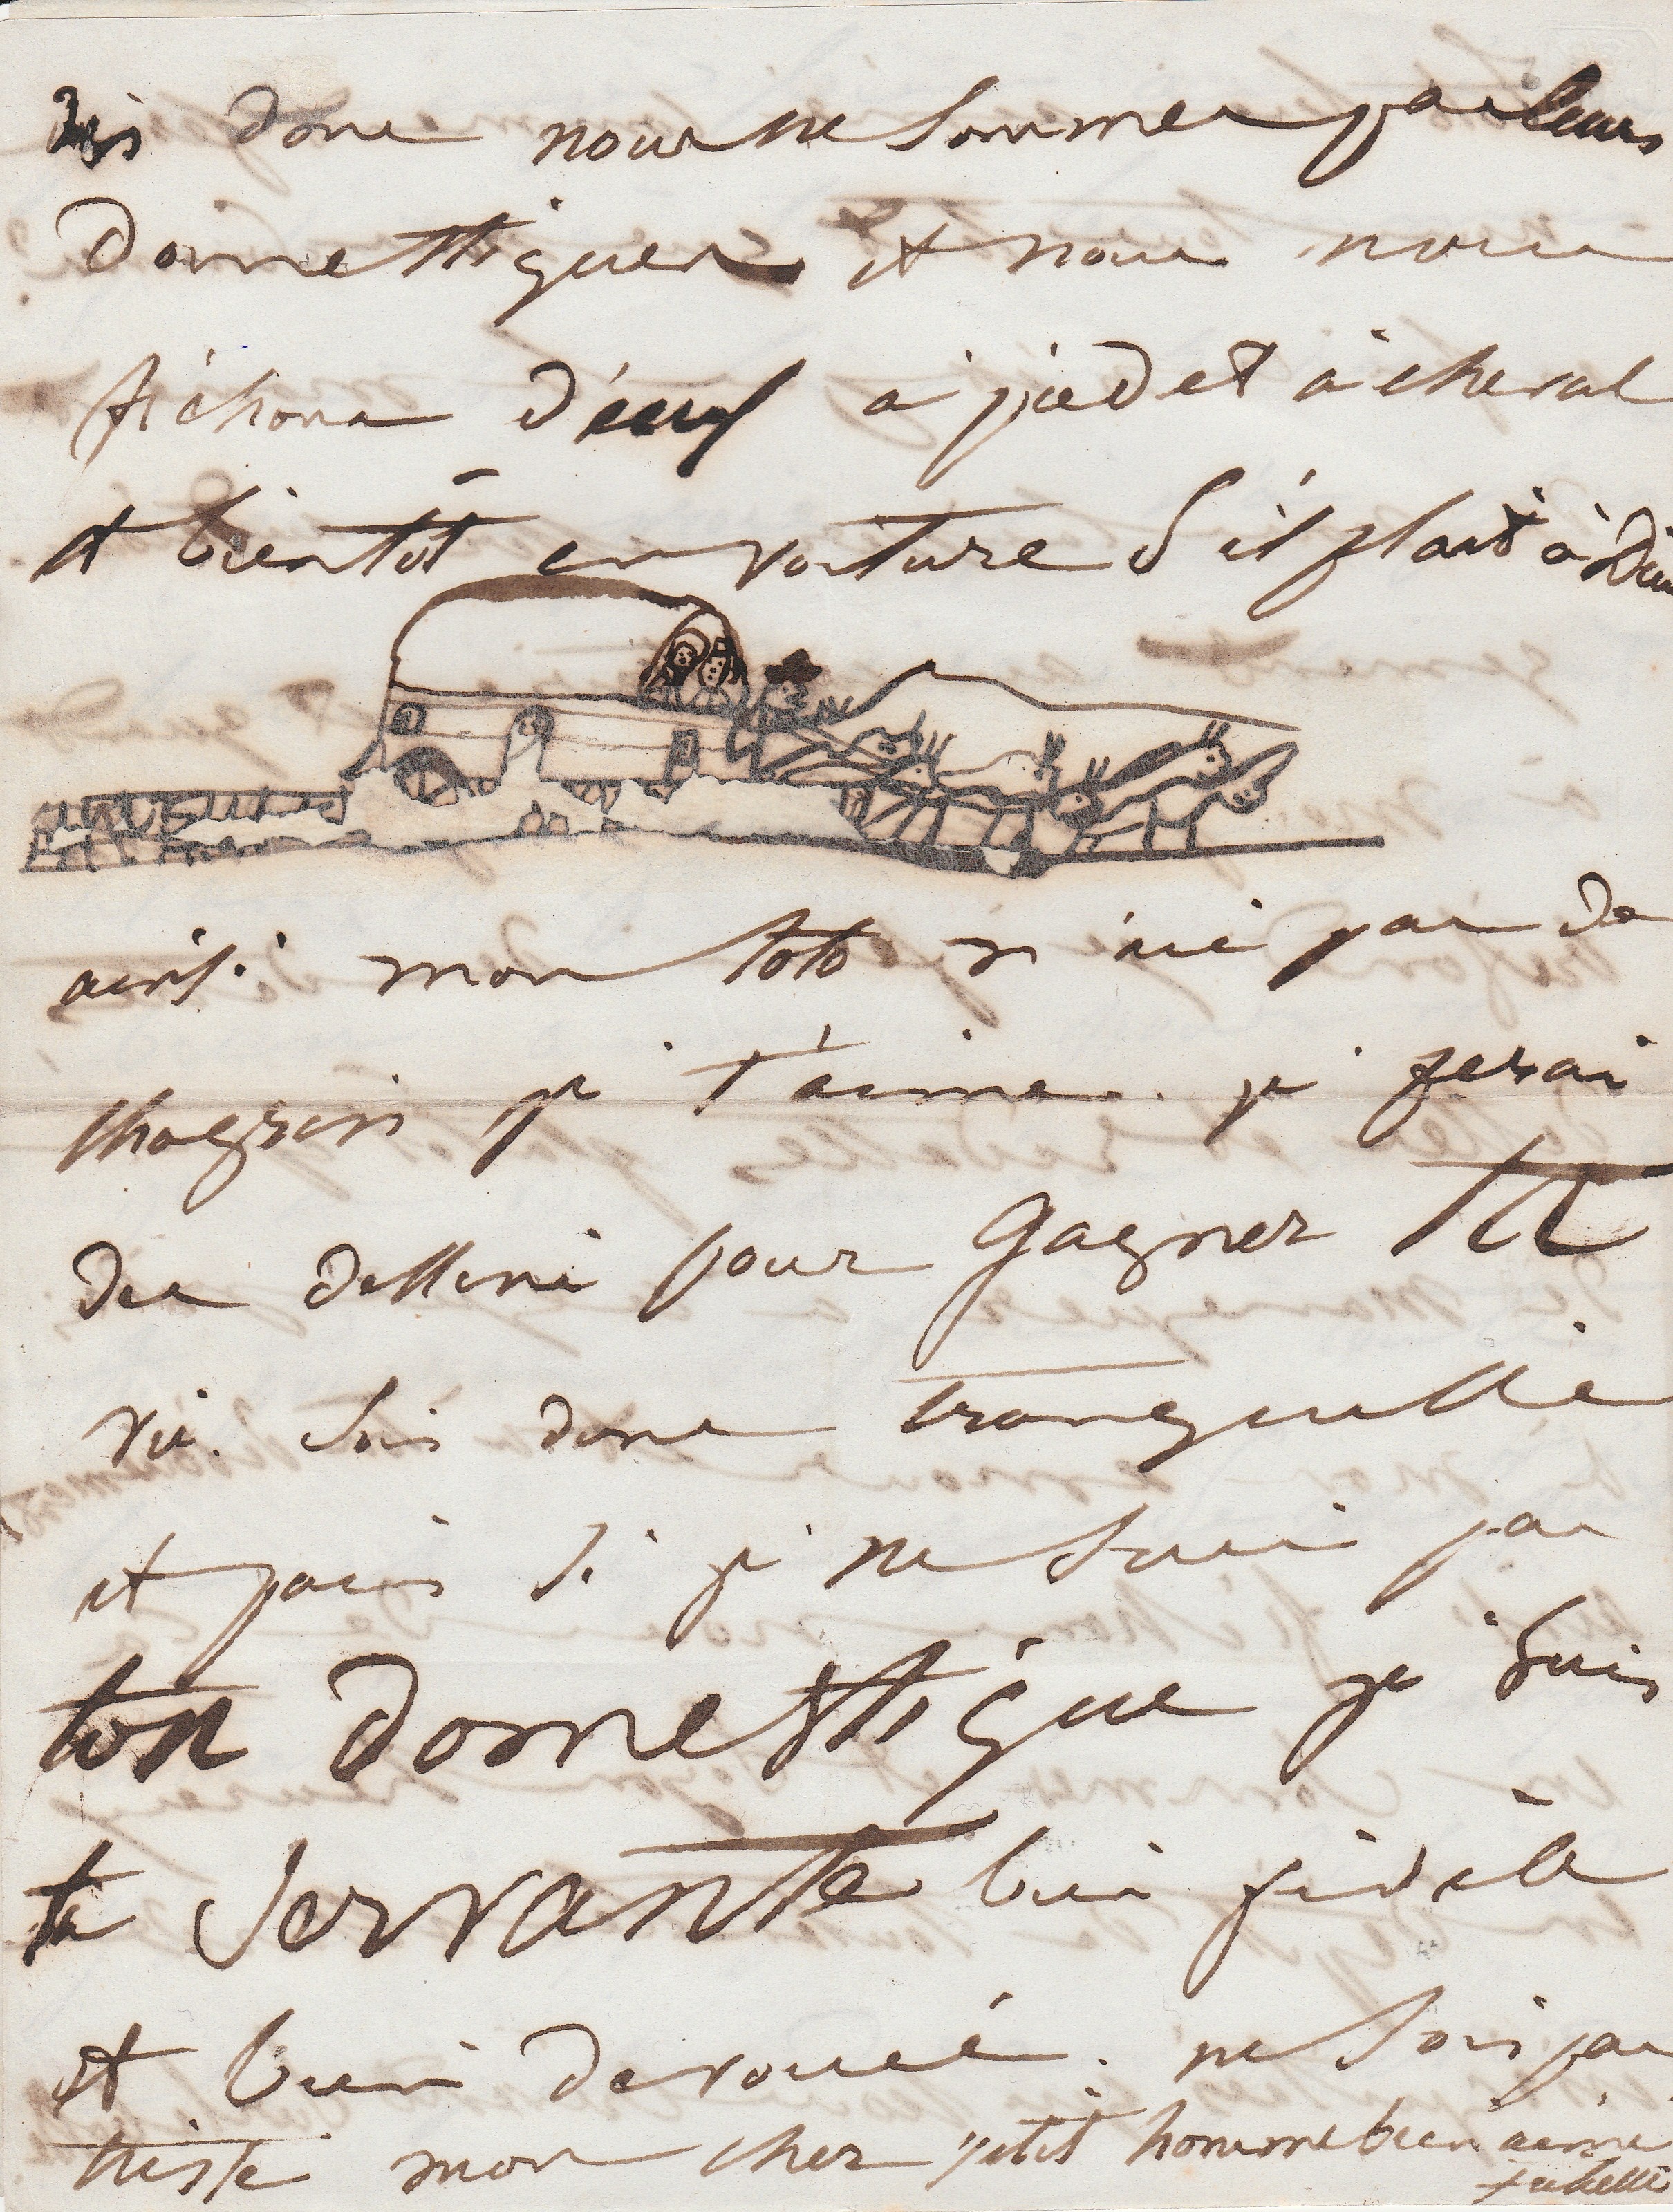 Dis donc nous ne sommes pas leurs
domestiques et nous nous
fichons d'eux à pied et à cheval
et bientôt en voiture s'il plaît à Dieu
ainsi mon toto n'aie pas de
chagrin je t'aime. je ferai
des dessins pour gagner ta
vie. Sois donc tranquille
et puis si je ne suis pas
ton domestique je suis
ta servante bien fidèle
et bien dévouée. ne sois pas
triste mon cher petit homme bien aimé
Juliette